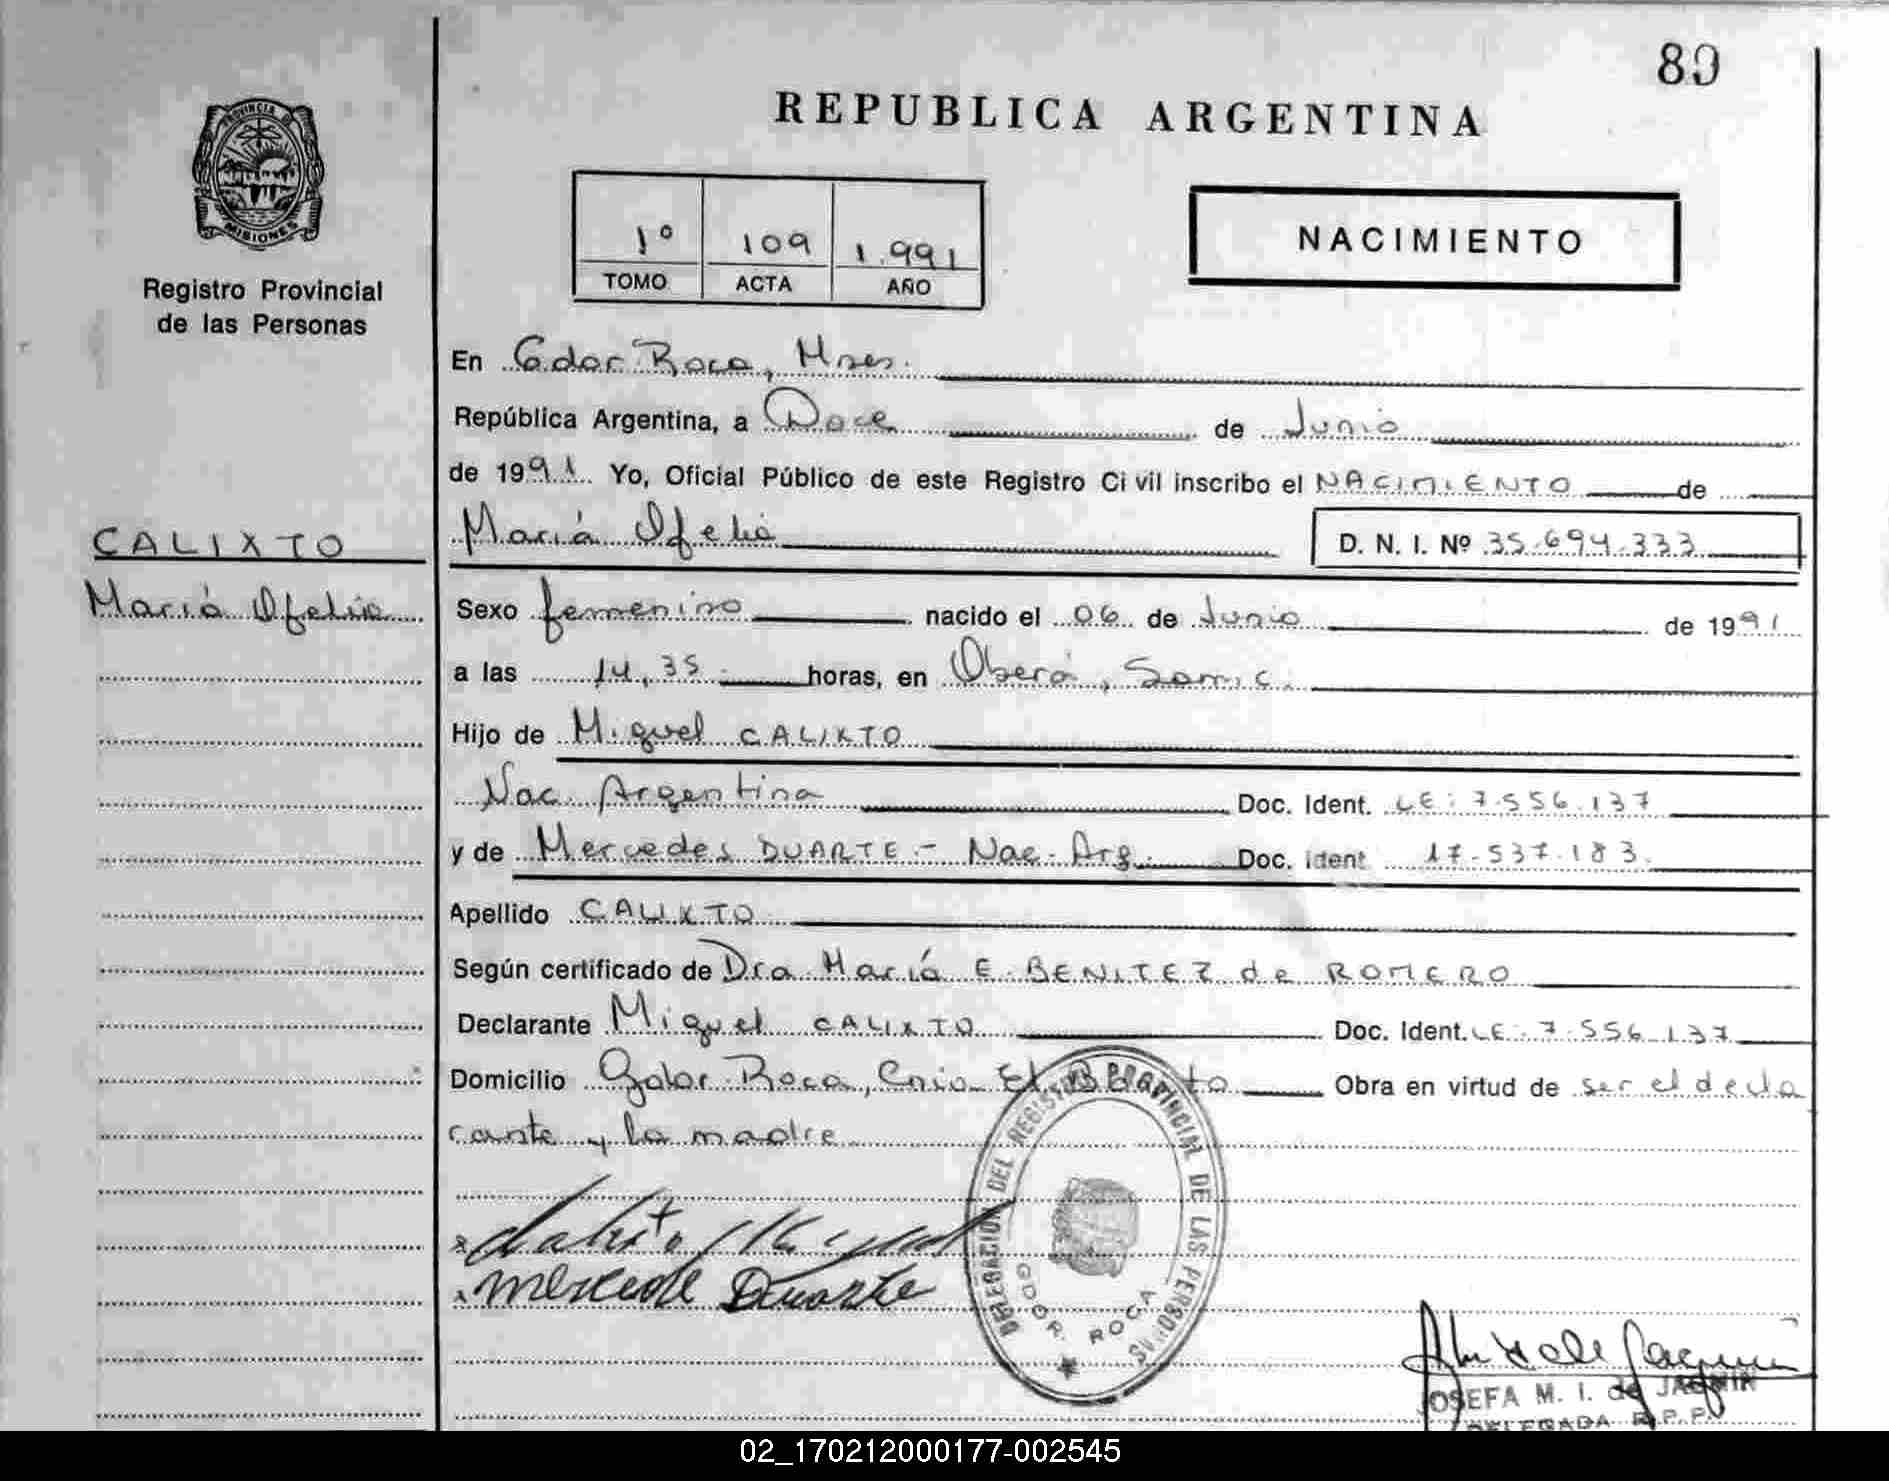 89
PROVINCIA DE
MISIONES
Registro Provincial
de las Personas
CALIXTO
María Ofelia
REPUBLICA ARGENTINA
1º 109 1.991
TOMO ACTA AÑO
NACIMIENTO
En Gdor Roca, Mnes.
República Argentina, a Doce de Junio
de 1991 Yo, Oficial Público de este Registro Civil inscribo el NACIMIENTO de
María Ofelia D. N. I. Nº 35.694.333
Sexo femenino nacido el 06 de Junio de 1991
a las 14,35 horas, en Oberá, Samic.
Hijo de Miguel CALIXTO
Nac. Argentina Doc. Ident. LE: 7.556.137
y de Mercedes DUARTE - Nac. Arg. Doc. Ident 17.537.183.
Apellido CALIXTO
Según certificado de Dra María E. BENITEZ de ROMERO
Declarante Miguel CALIXTO Doc. Ident. LE: 7.556.137
Domicilio Gdor Roca, Obra en virtud de ser el decla
rante y la madre
Calixto Miguel
Mercede Duarte
DELEGACION DEL REGISTRO PROVINCIAL DE LAS PERSONAS
GDOR. ROCA
JOSEFA M. I. de JACMIN
DELEGADA R.P.P.
02_170212000177-002545